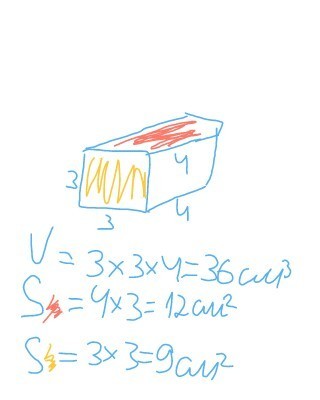 4
3
4
3
V = 3×3×4=36 см³
S = 4×3=12 см²
S = 3×3=9 см²